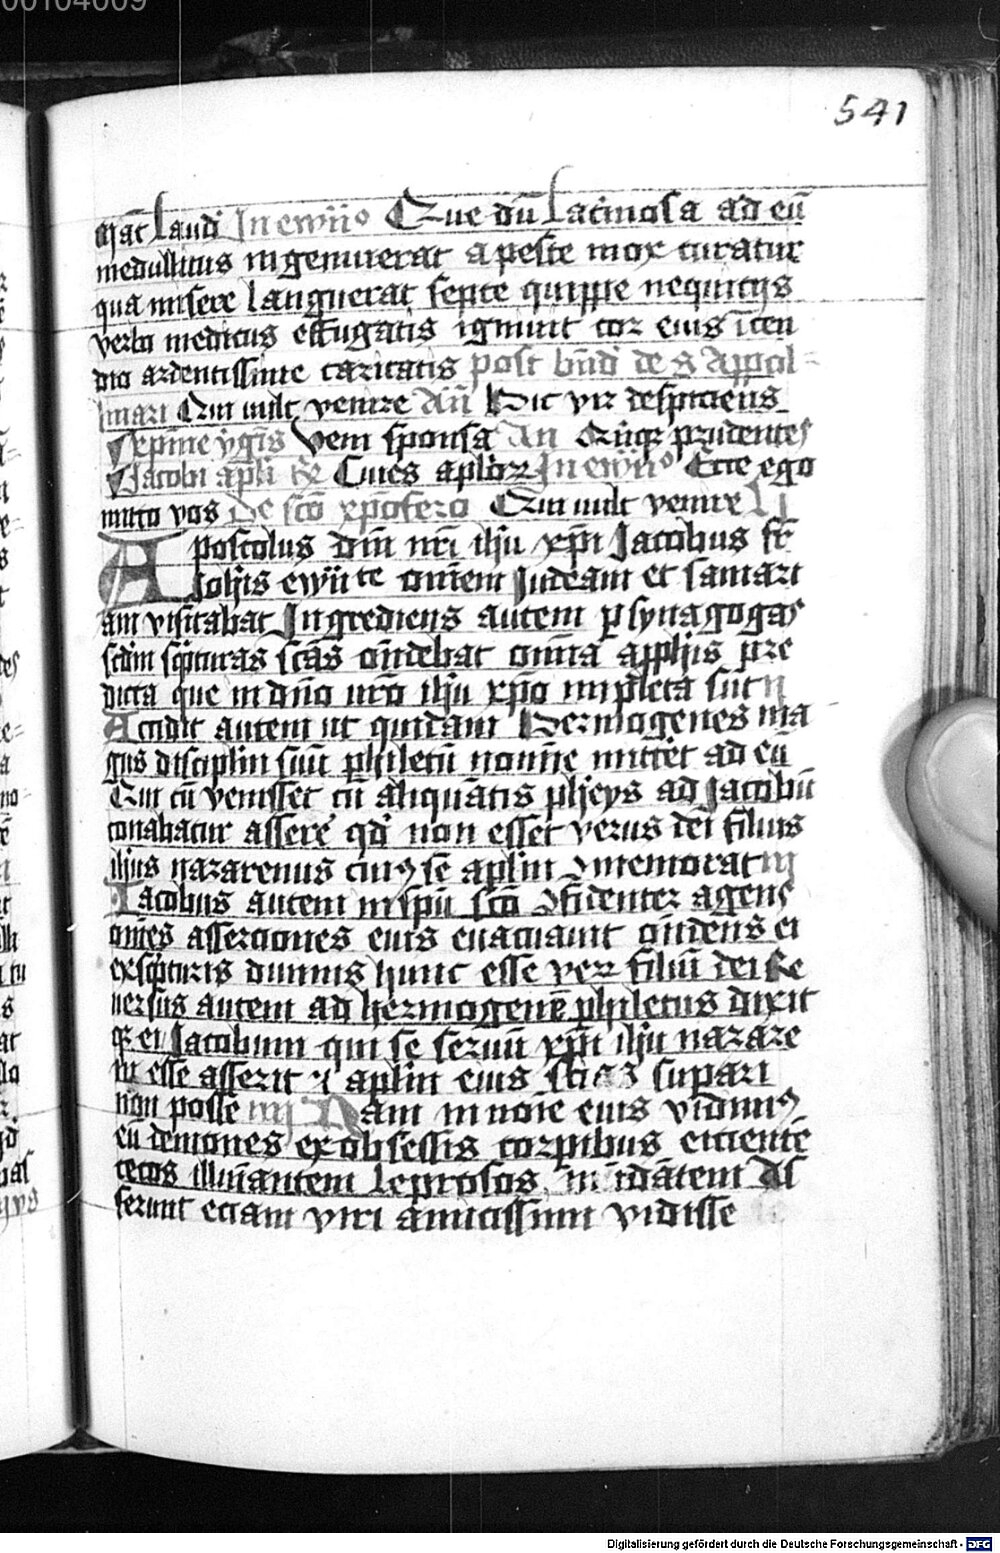 00104009
541
Laudˀ In ewīīo Que dū lacrīosa ad eū
medullitus ingemuerat a peste mox curatur
qua misere languerat septē quippe nequicijs
verbo medicus effugatis igniuit cor eius īcen
dio ardentissime caritatis post bn̄dˀ de s Appol-
linari Qui uult venire An̄ Hic vir despiciens
vgīs Veni sponsa An Quīqꝫ prudentes
Jacobi apli Ciues aplorꝝ In ewīīo Ecce ego
mitto vos De scō xpōfero Qui uult venire
Apostolus dn̄i nr̄i ihū xp̄i Jacobus fr̄
Johīs ewīīte omēm Judeam et samari
am visitabat Ingrediens autem ꝑ synagogas
scdm sc̄pturas scās on̄debat omīa a ꝓphīs pre
dicta que in dn̄o nr̄o ihū xp̄o impleta sūt ij
Accidit autem ut quidam Hermogenes ma
gus disciplm suū philetū nomīe mittēt ad eū
Qui cū venisset cū aliquātis phẏs ad Jacobū
conabatur asserēˀ qdˀ non esset verus dei filius
ihūs nazarenus cuiꝰ se aplm ꝯmemorat iij
Jacobus autem in spū scō ꝯfidenter agens
om̄es assercōnes eius euacuauit on̄dens ei
ex sc̄pturis diuinis hunc esse verꝝ filiū dei Re
uersus autem ad hermogenē philetus dixit
ei Jacobum qui se seruū xp̄i ihū nazare
ni esse asserit ⁊ aplm eius supari
non posse iiij Nam in noīe eius vidimꝰ
eū demones ex obsessis corpibus eiciente
cecos illuīantem leprosos mūdātem As
serunt eciam viri amicissimi vidisse
Digitalisierung gefördert durch die Deutsche Forschungsgemeinschaft - DFG